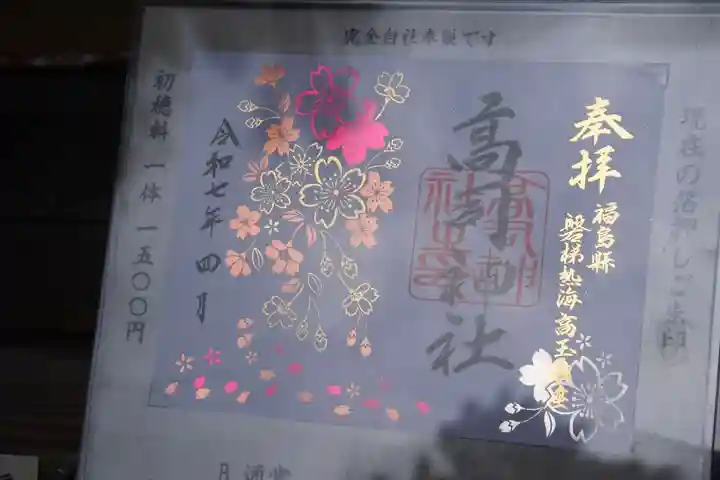 完全自社奉製です
現在の箔押しご朱印
奉拝
福島縣
磐梯熱海高玉鎮座
高司神社
令和七年四月
初穂料 一体 一五〇〇円